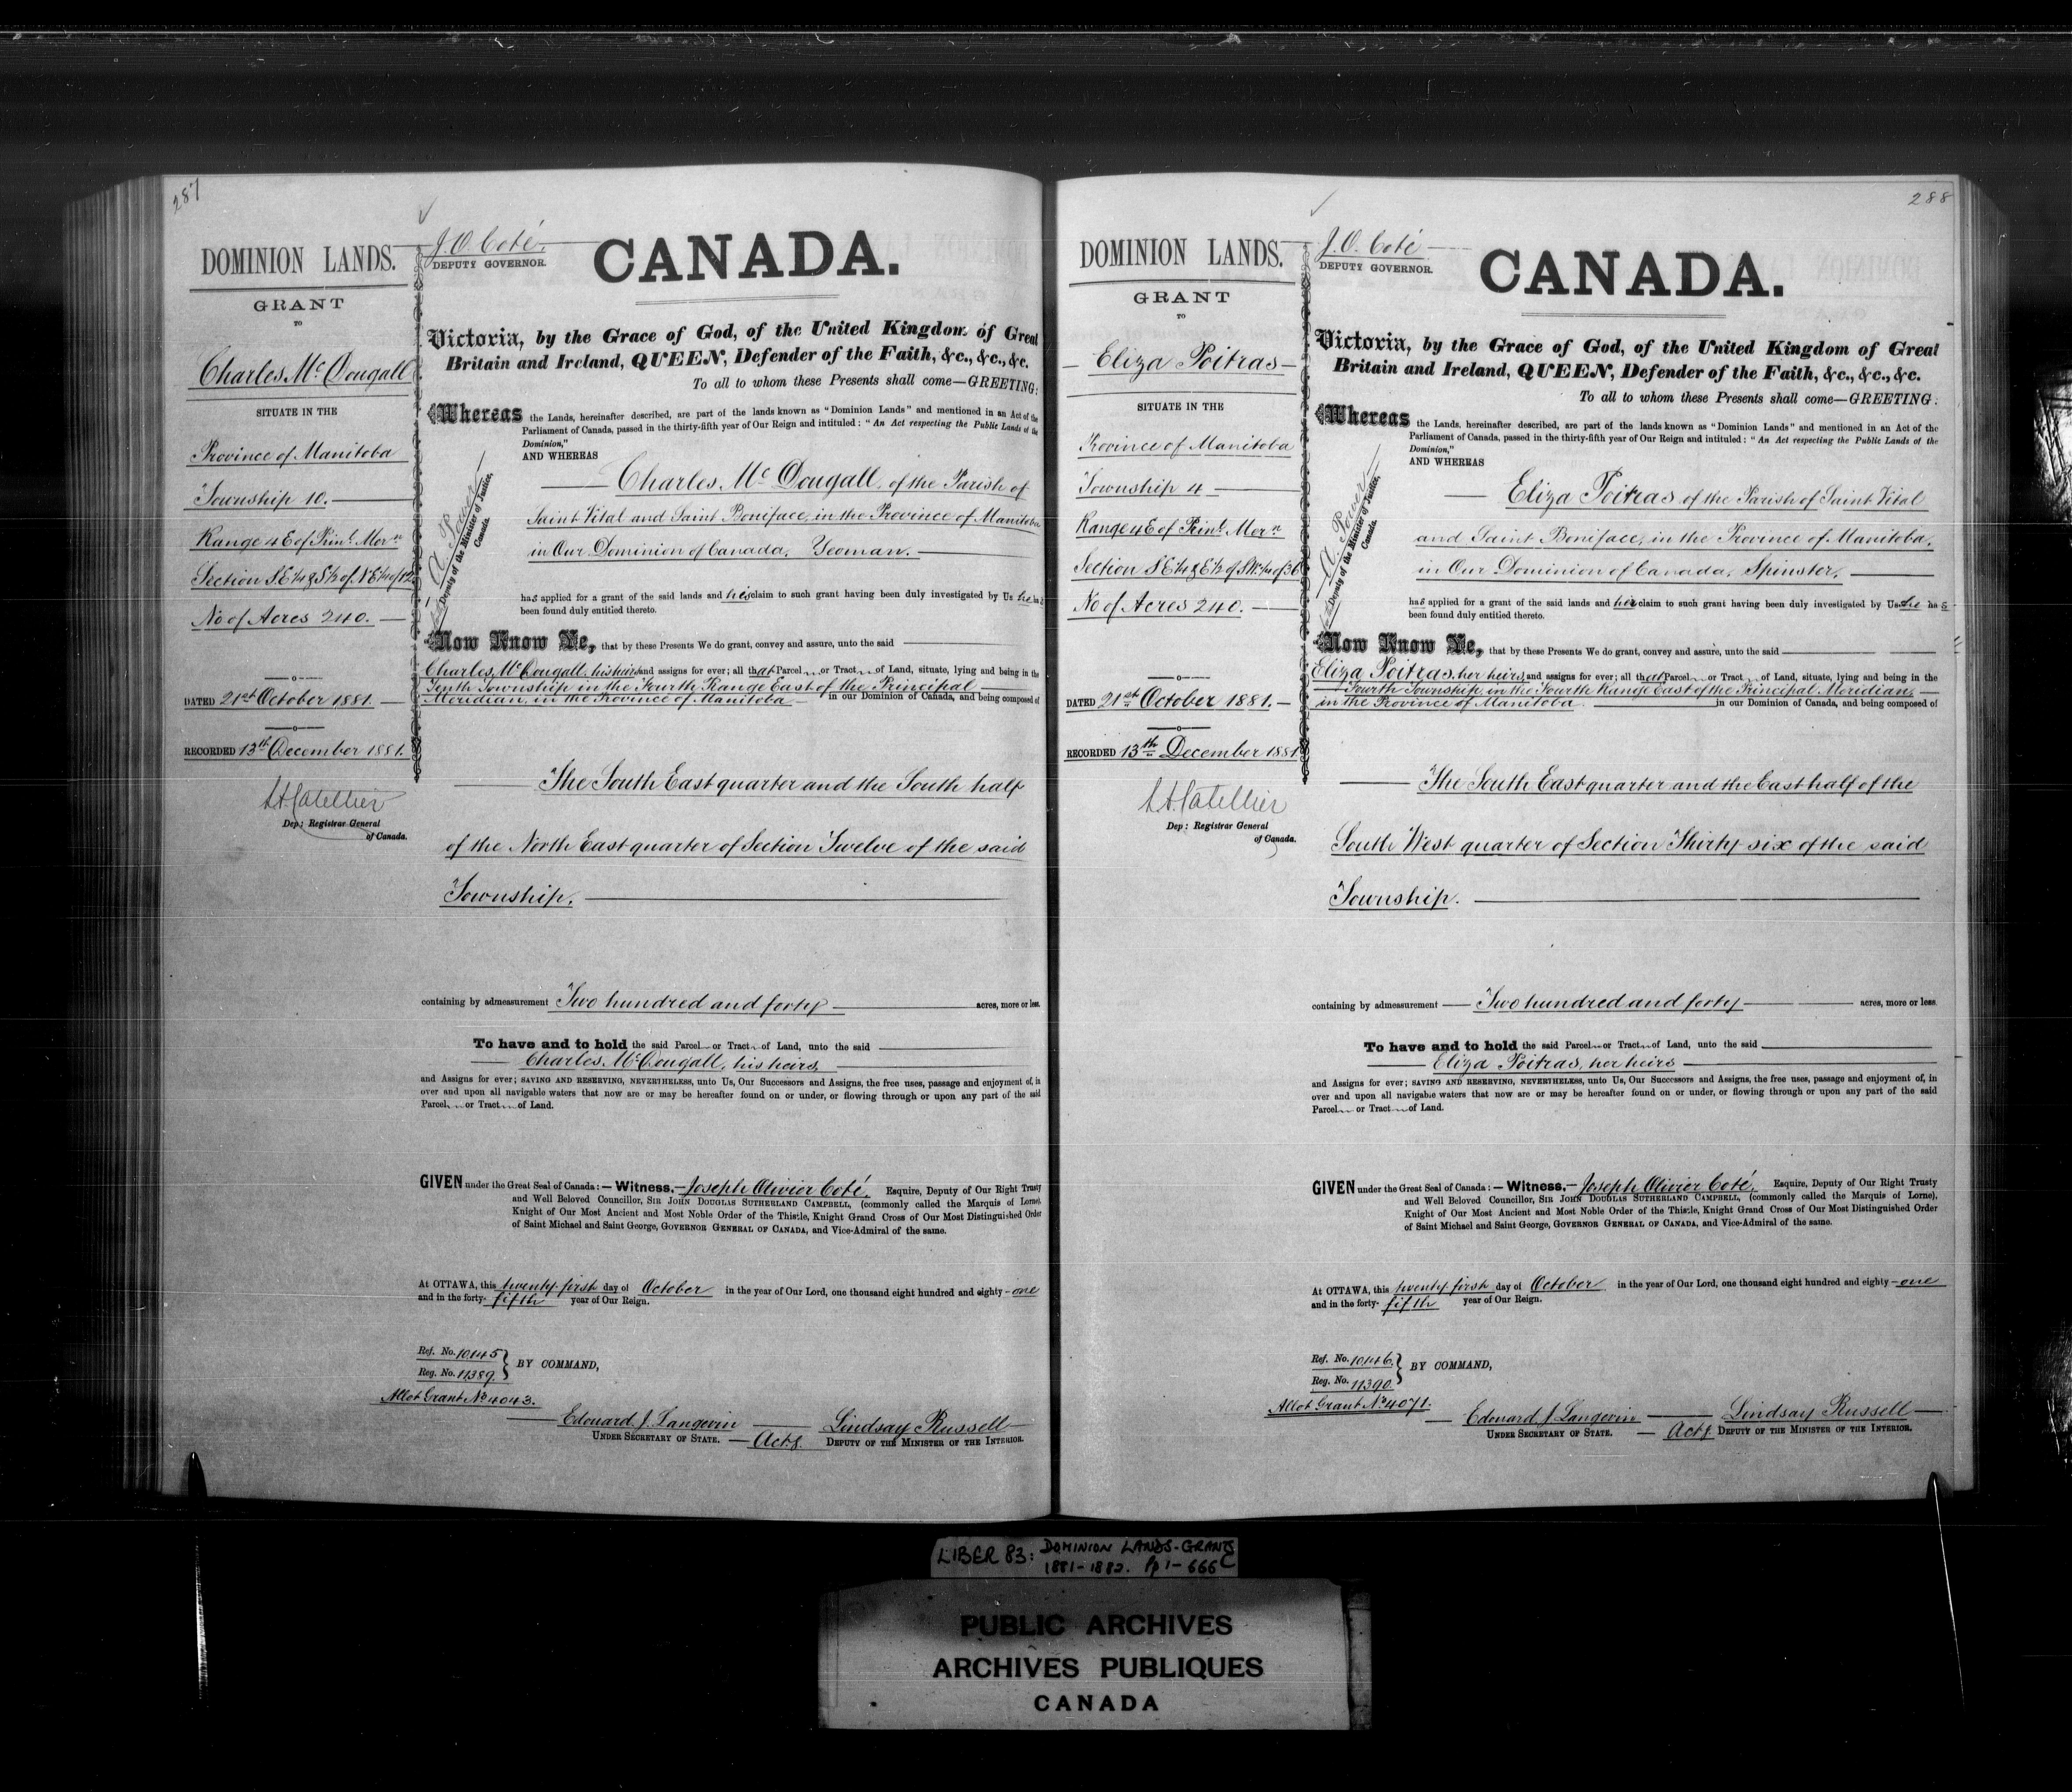 287
DOMINION LANDS.
GRANT
TO
Charles Mc Dougall
SITUATE IN THE
Province of Manitoba
Township 10.
Range 4 E of Prin.l Mer.n
Section S.E¼ & S½ of N.E¼ of 12
No of Acres 240.
DATED 21st October 1881.
RECORDED 13th December 1881.
Dep: Registrar General
of Canada.
J.O. Coté.
DEPUTY GOVERNOR.
CANADA.
Victoria, by the Grace of God, of the United Kingdom of Great
Britain and Ireland, QUEEN, Defender of the Faith, &c., &c., &c.
To all to whom these Presents shall come—GREETING:
Whereas the Lands, hereinafter described, are part of the lands known as "Dominion Lands" and mentioned in an Act of the
Parliament of Canada, passed in the thirty-fifth year of Our Reign and intituled: "An Act respecting the Public Lands of the
Dominion,"
AND WHEREAS
Charles Mc Dougall, of the Parish of
Saint Vital and Saint Boniface, in the Province of Manitoba
in Our Dominion of Canada, Yeoman.
A. Power
Deputy of the Minister of Justice,
Canada.
has applied for a grant of the said lands and his claim to such grant having been duly investigated by Us he has
been found duly entitled thereto.
Now Know Ye, that by these Presents We do grant, convey and assure, unto the said
Charles Mc Dougall, his heirs and assigns for ever; all that Parcel or Tract of Land, situate, lying and being in the
Tenth Township in the Fourth Range East of the Principal
Meridian, in the Province of Manitoba in our Dominion of Canada, and being composed of
The South East quarter and the South half
of the North East quarter of Section Twelve of the said
Township.
containing by admeasurement Two hundred and forty acres, more or less.
To have and to hold the said Parcel or Tract of Land, unto the said
Charles Mc Dougall, his heirs
and Assigns for ever; SAVING AND RESERVING, NEVERTHELESS, unto Us, Our Successors and Assigns, the free uses, passage and enjoyment of, in
over and upon all navigable waters that now are or may be hereafter found on or under, or flowing through or upon any part of the said
Parcel or Tract of Land.
GIVEN under the Great Seal of Canada:—Witness,—Joseph Olivier Coté, Esquire, Deputy of Our Right Trusty
and Well Beloved Councillor, SIR JOHN DOUGLAS SUTHERLAND CAMPBELL, (commonly called the Marquis of Lorne),
Knight of Our Most Ancient and Most Noble Order of the Thistle, Knight Grand Cross of Our Most Distinguished Order
of Saint Michael and Saint George, GOVERNOR GENERAL OF CANADA, and Vice-Admiral of the same.
At OTTAWA, this twenty first day of October in the year of Our Lord, one thousand eight hundred and eighty-one
and in the forty-fifth year of Our Reign.
Ref. No. 10145
Reg. No. 11389.
BY COMMAND,
Allot Grant No 4043.
Edouard J. Langevin
UNDER SECRETARY OF STATE.
Lindsay Russell
Actg. DEPUTY OF THE MINISTER OF THE INTERIOR.
288
DOMINION LANDS.
GRANT
TO
Eliza Poitras
SITUATE IN THE
Province of Manitoba
Township 4
Range 4 E of Prin.l Mer.n
Section S.E¼ & E½ of S.W.¼ of 36
No of Acres 240.
DATED 21st October 1881.
RECORDED 13th December 1881
Dep: Registrar General
of Canada.
J.O. Coté
DEPUTY GOVERNOR.
CANADA.
Victoria, by the Grace of God, of the United Kingdom of Great
Britain and Ireland, QUEEN, Defender of the Faith, &c., &c., &c.
To all to whom these Presents shall come—GREETING:
Whereas the Lands, hereinafter described, are part of the lands known as "Dominion Lands" and mentioned in an Act of the
Parliament of Canada, passed in the thirty-fifth year of Our Reign and intituled: "An Act respecting the Public Lands of the
Dominion,"
AND WHEREAS
Eliza Poitras of the Parish of Saint Vital
and Saint Boniface, in the Province of Manitoba,
in Our Dominion of Canada, Spinster,
A. Power
Deputy of the Minister of Justice,
Canada.
has applied for a grant of the said lands and her claim to such grant having been duly investigated by Us she has
been found duly entitled thereto.
Now Know Ye, that by these Presents We do grant, convey and assure, unto the said
Eliza Poitras, her heirs, and assigns for ever; all that Parcel or Tract of Land, situate, lying and being in the
Fourth Township in the Fourth Range East of the Principal Meridian,
in the Province of Manitoba. in our Dominion of Canada, and being composed of
The South East quarter and the East half of the
South West quarter of Section Thirty six of the said
Township.
containing by admeasurement Two hundred and forty acres, more or less.
To have and to hold the said Parcel or Tract of Land, unto the said
Eliza Poitras, her heirs
and Assigns for ever; SAVING AND RESERVING, NEVERTHELESS, unto Us, Our Successors and Assigns, the free uses, passage and enjoyment of, in
over and upon all navigable waters that now are or may be hereafter found on or under, or flowing through or upon any part of the said
Parcel or Tract of Land.
GIVEN under the Great Seal of Canada:—Witness,—Joseph Olivier Coté, Esquire, Deputy of Our Right Trusty
and Well Beloved Councillor, SIR JOHN DOUGLAS SUTHERLAND CAMPBELL, (commonly called the Marquis of Lorne),
Knight of Our Most Ancient and Most Noble Order of the Thistle, Knight Grand Cross of Our Most Distinguished Order
of Saint Michael and Saint George, GOVERNOR GENERAL OF CANADA, and Vice-Admiral of the same.
At OTTAWA, this twenty first day of October in the year of Our Lord, one thousand eight hundred and eighty-one
and in the forty-fifth year of Our Reign.
Ref. No. 10146.
Reg. No. 11390.
BY COMMAND,
Allot Grant No 4071.
Edouard J Langevin
UNDER SECRETARY OF STATE.
Lindsay Russell
Actg. DEPUTY OF THE MINISTER OF THE INTERIOR.
LIBER 83: DOMINION LANDS-GRANTS
1881-1882. Pp 1-666
PUBLIC ARCHIVES
ARCHIVES PUBLIQUES
CANADA